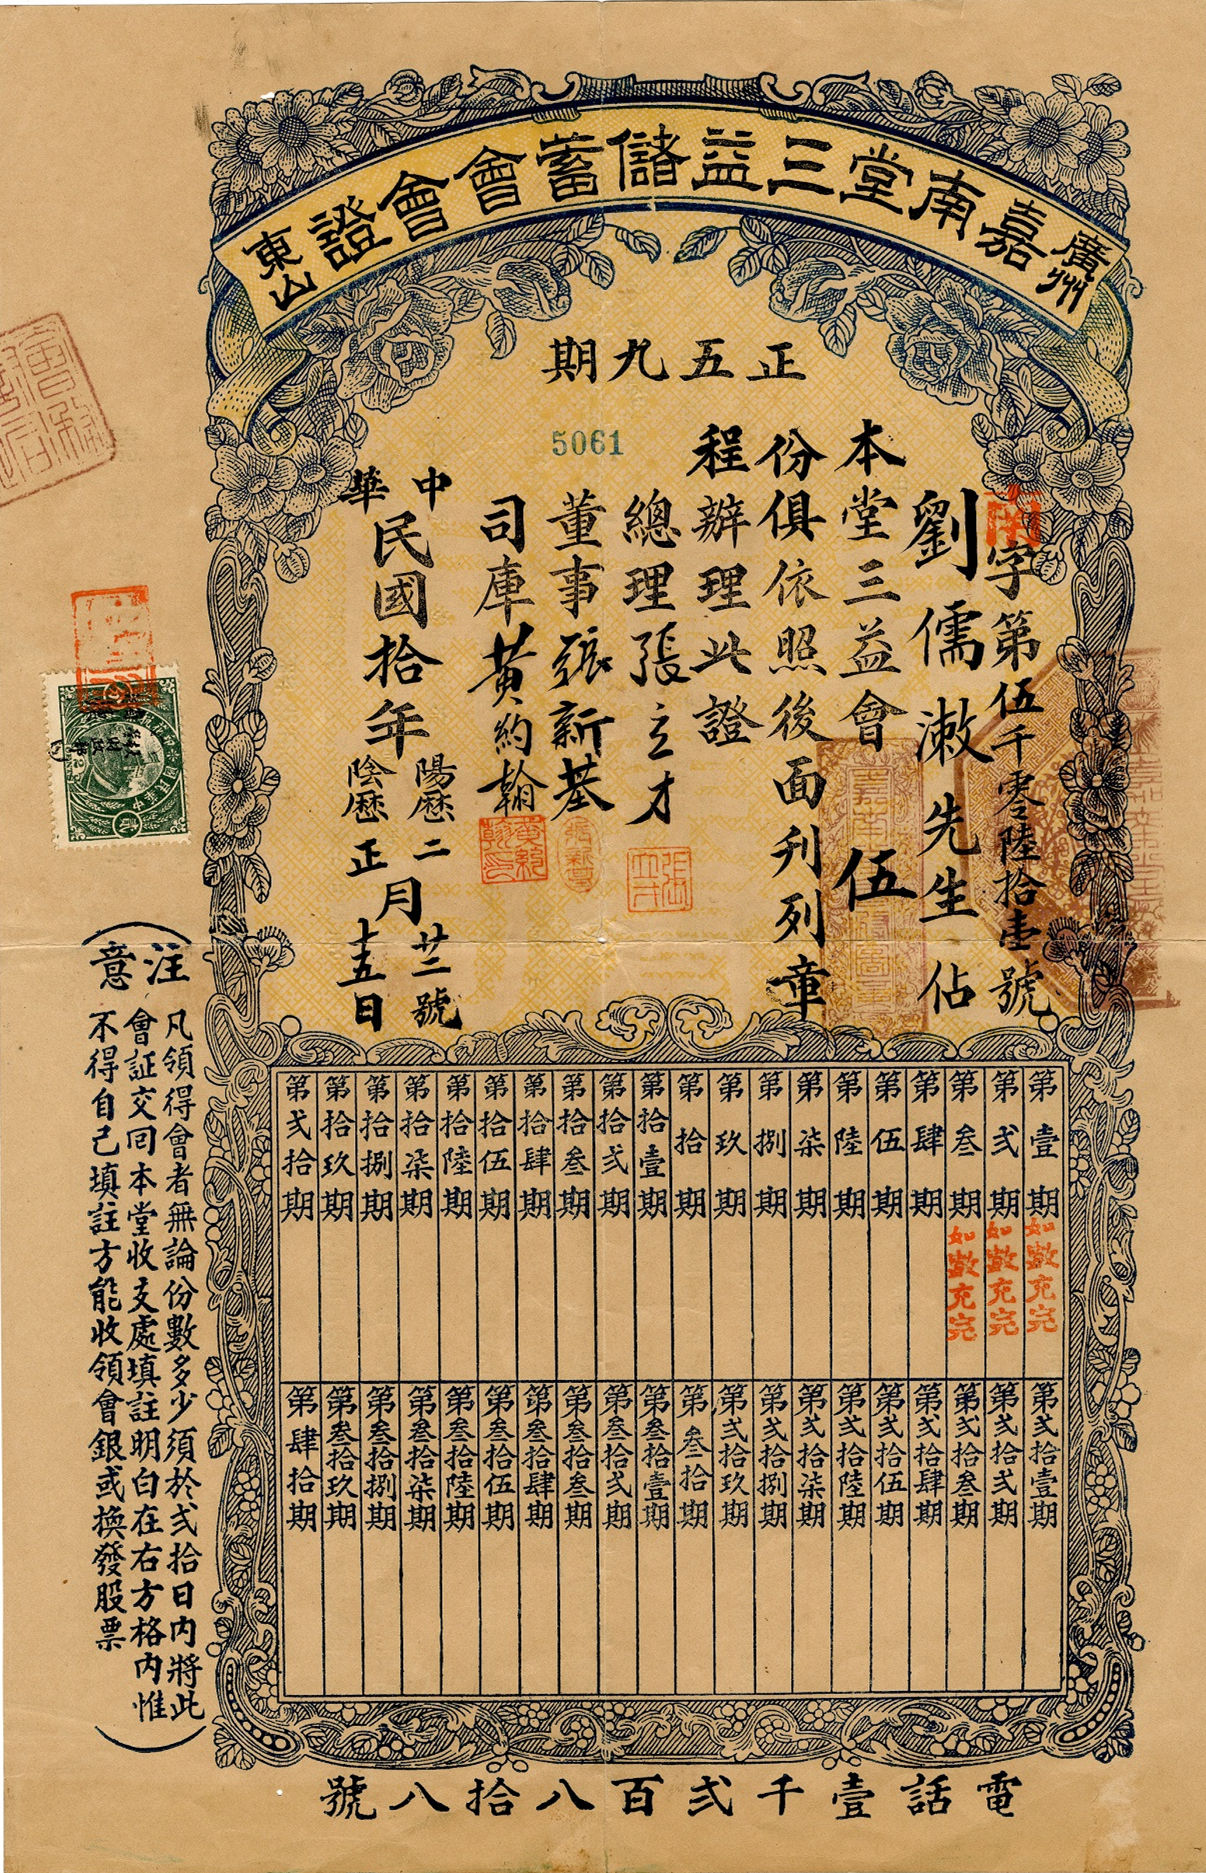 廣州嘉南堂三益儲蓄會會證東山
正五九期
5061
南字第伍千零陸拾壹號
劉儒漱先生佔
本堂三益會伍
份俱依照後面刋列章
程辦理此證
總理張立才
董事張新基
司庫黃約翰
中華民國拾年陽曆二月廿二號陰曆正月十五日
第壹期
如數充完
第弍期
如數充完
第叁期
如數充完
第肆期
第伍期
第陸期
第柒期
第捌期
第玖期
第拾期
第拾壹期
第拾弍期
第拾叁期
第拾肆期
第拾伍期
第拾陸期
第拾柒期
第拾捌期
第拾玖期
第弍拾期
第弍拾壹期
第弍拾弍期
第弍拾叁期
第弍拾肆期
第弍拾伍期
第弍拾陸期
第弍拾柒期
第弍拾捌期
第弍拾玖期
第叁拾期
第叁拾壹期
第叁拾弍期
第叁拾叁期
第叁拾肆期
第叁拾伍期
第叁拾陸期
第叁拾柒期
第叁拾捌期
第叁拾玖期
第肆拾期
(注意)
凡領得會者無論份數多少須於弍拾日內將此
會証交回本堂收支處填註明白在右方格內惟
不得自己填註方能收領會銀或換發股票
電話壹千弍百八拾八號